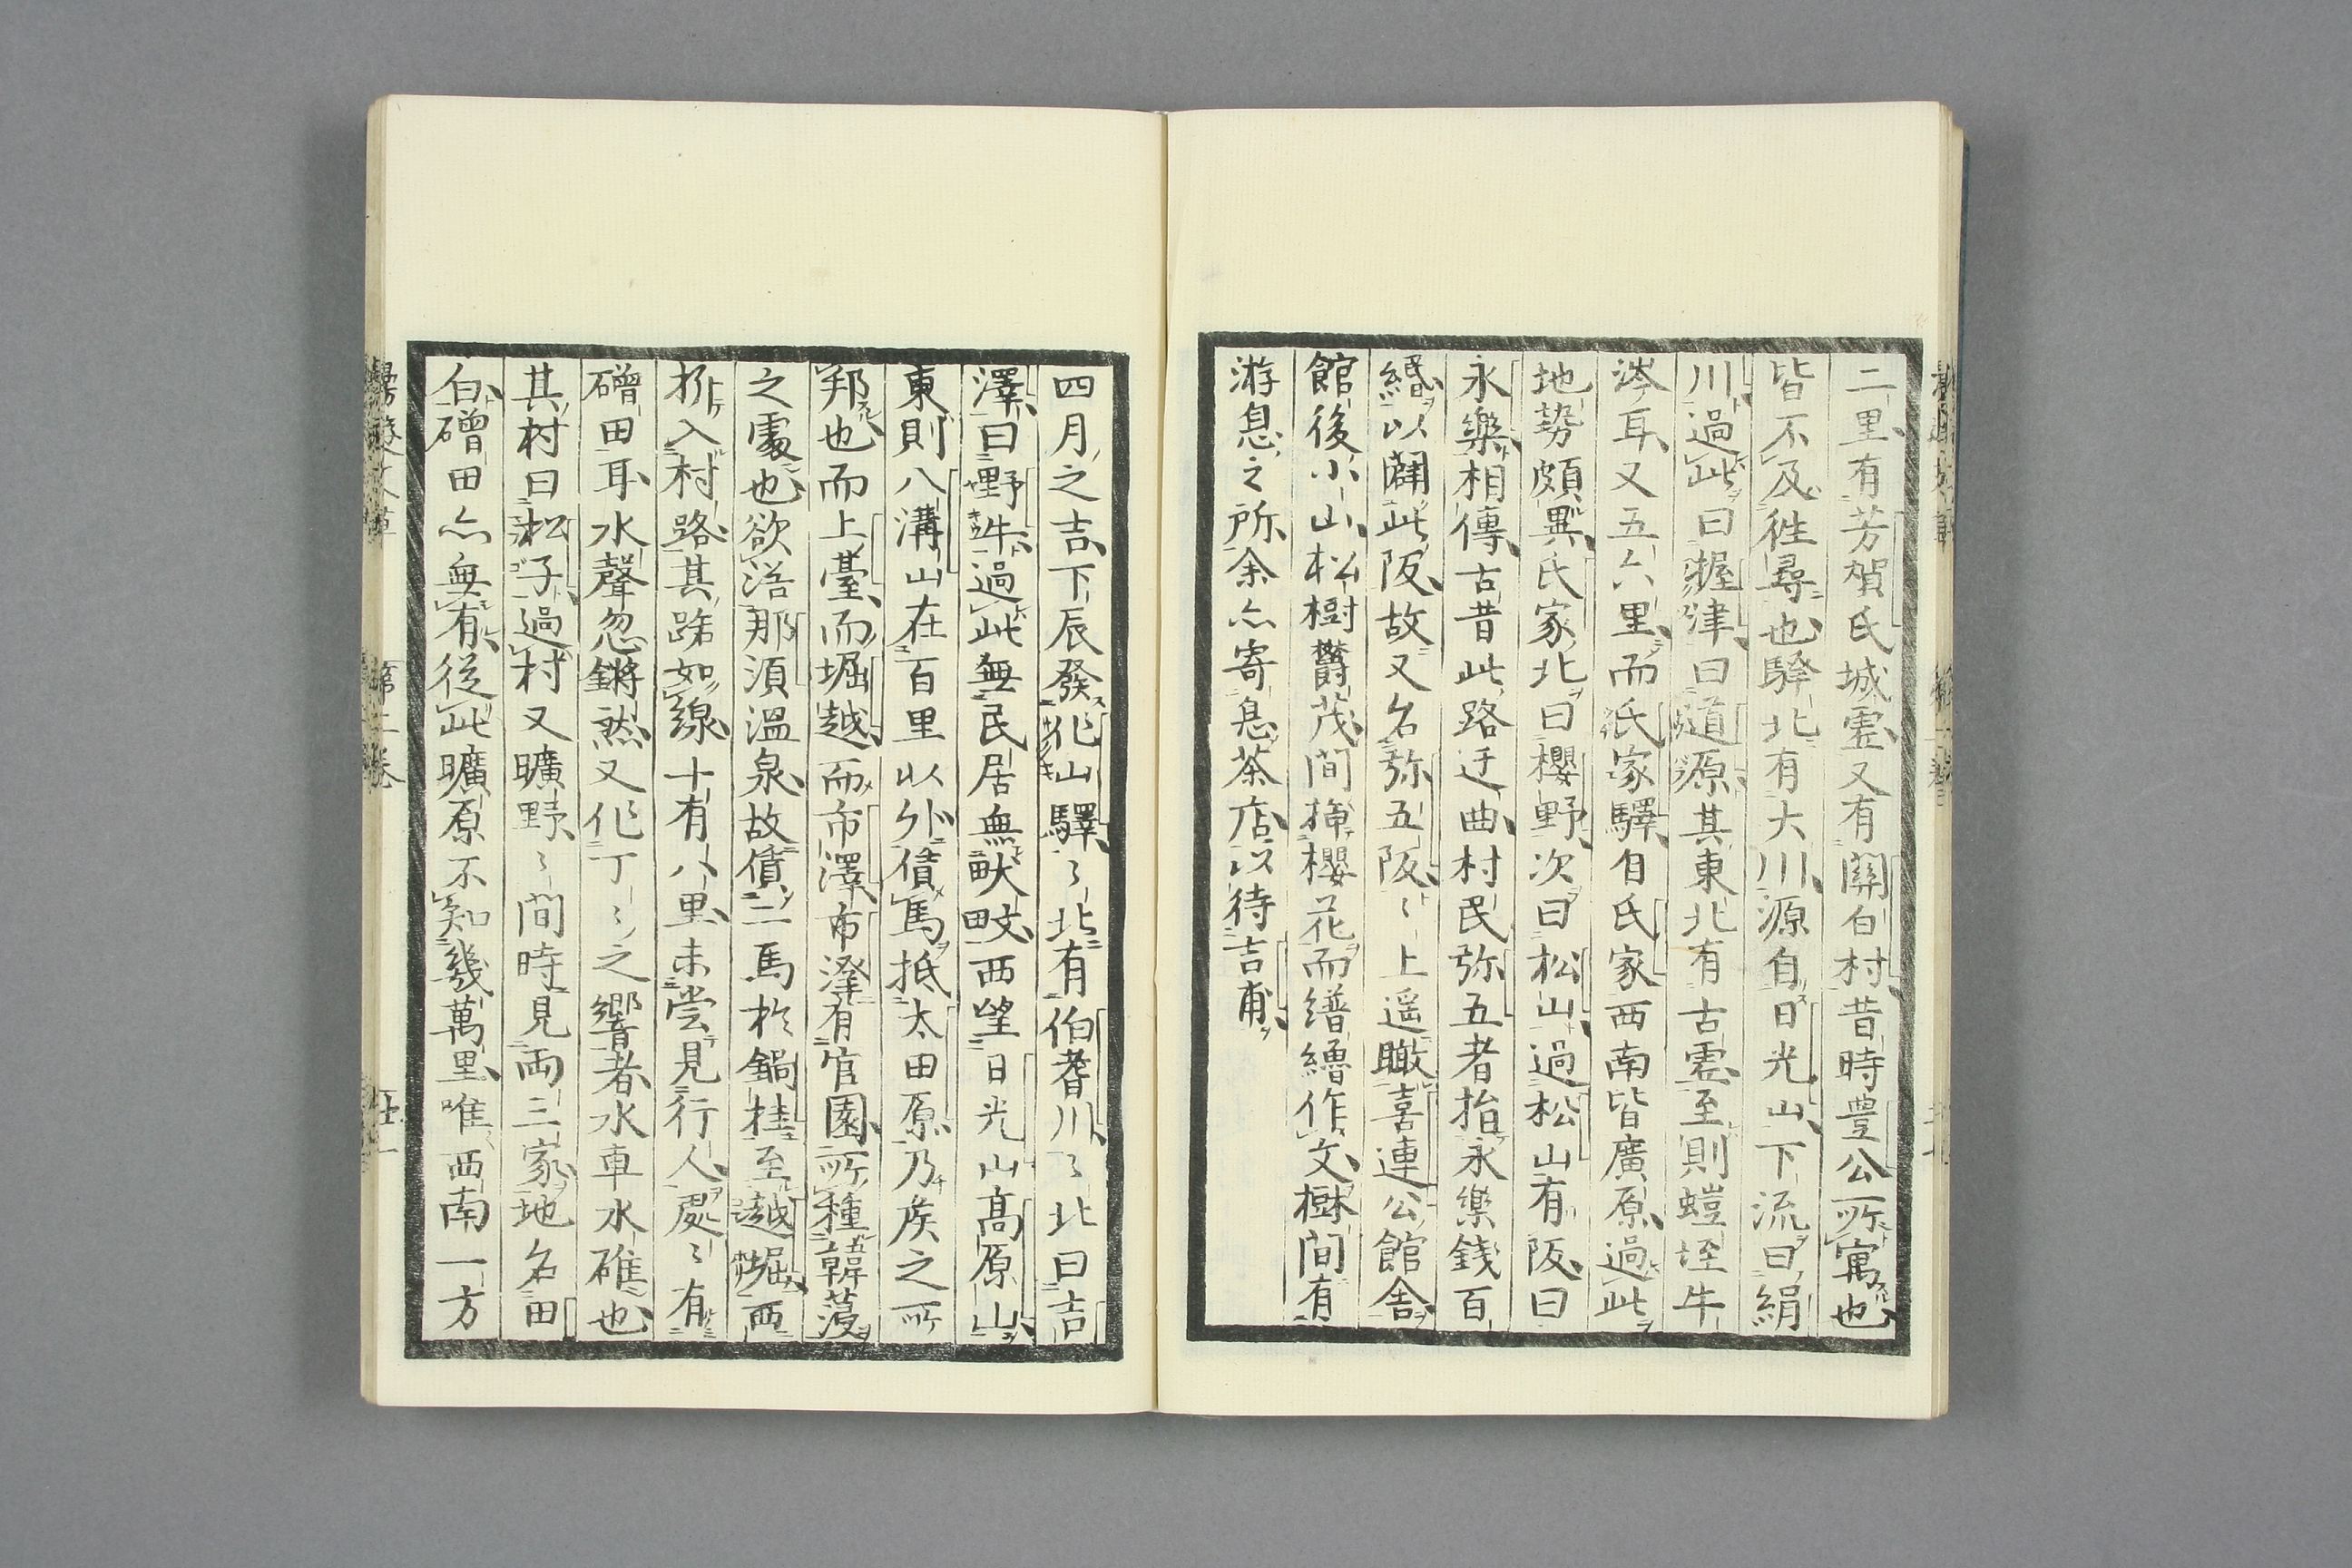 二里有芳賀氏城虚又有関白村昔時豊公所寓也
皆不及徃尋也驛北有大川源自日光山下流曰絹
川過此曰握津曰道源其東北有古虚至則螘垤牛
涔耳又五六里而氏家驛自氏家西南皆廣原過此
地勢頗異氏家北曰櫻野次曰松山過松山有阪曰
永樂相傳古昔此路迂曲村民弥五者指永樂錢百
緡以闢此阪故又名弥五阪〻上遥瞰喜連公館舎
館後小山松樹欝茂間挿櫻花而繕繪作文樹間有
游息之所余亦寄息茶店以待吉甫
四月之吉下辰發作山驛〻北有伯耆川〻北曰吉
澤曰野牛過此無民居無畎畝西望日光山高原山
東則八溝山在百里以外債馬抵太田原乃侯之所
邦也而上臺而堀越而市澤市澄有官園所種韓蔆
之處也欲浴那須溫泉故債二馬於鍋桂至越堀西
折入村路其蹄如線十有八里未尝見行人處〻有
磳田耳水聲忽鏘然又作丁〻之響者水車水碓也
其村曰松子過村又曠野〻間時見両三家地名田
白磳田亦無有從此曠原不知幾萬里唯西南一方